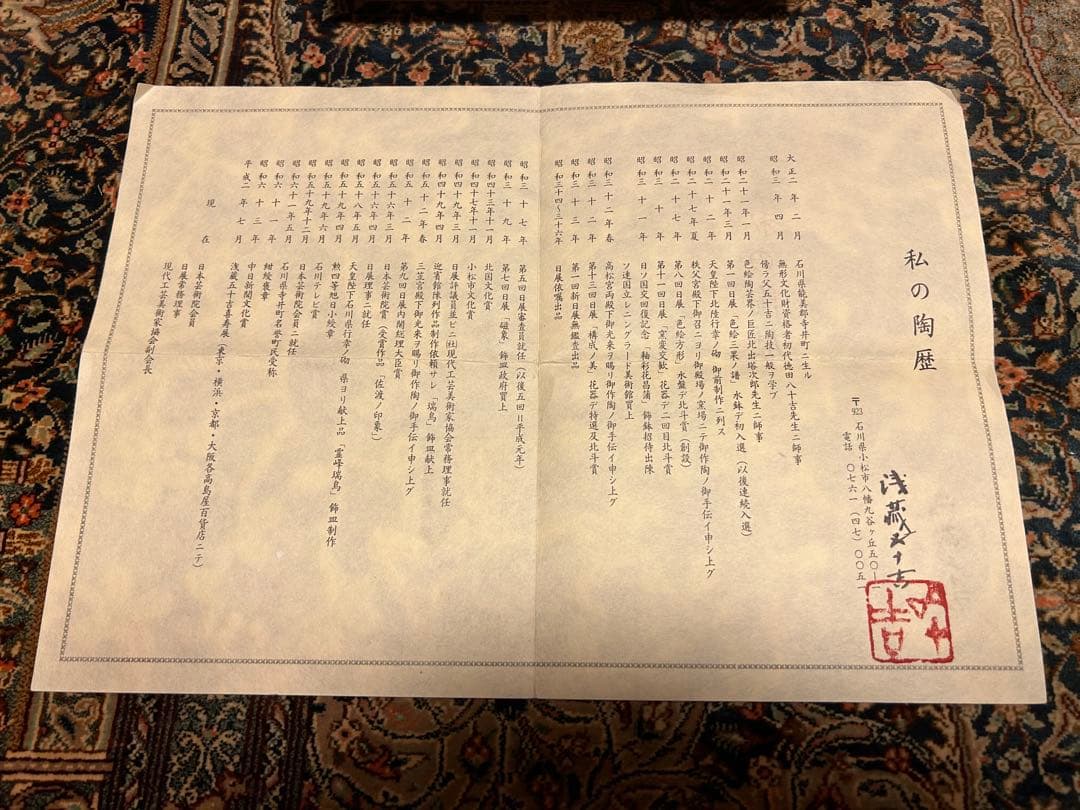 私の陶歴
浅蔵五十吉
〒923 石川県小松市八幡九谷ヶ丘五〇ー
電話 〇七六一(四七)〇〇五
五十吉
大正二年二月 石川県能美郡寺井町ニ生ル
昭和三年四月 無形文化財資格者初代徳田八十吉先生ニ師事
傍ラ父五十吉ニ陶技一般ヲ学ブ
昭和二十一年一月 色絵陶芸界ノ巨匠北出塔次郎先生ニ師事
昭和二十一年三月 第一回日展「色絵三果ノ譜」水鉢デ初入選(以後連続入選)
昭和二十二年 天皇陛下北陸行幸ノ砌 御前制作ニ列ス
昭和二十七年夏 秩父宮殿下御召ニヨリ御殿場ノ窯場ニテ御作陶ノ御手伝イ申シ上グ
昭和二十七年 第八回日展「色絵方形」水盤デ北斗賞(創設)
昭和三十年 第十一回日展「窯変交歓」花器デ二回目北斗賞
昭和三十一年 日ソ国交回復記念「釉彩花菖蒲」飾鉢招待出陳
ソ連国立レニングラード美術館買上
昭和三十二年春 高松宮両殿下御光来ヲ賜リ御作陶ノ御手伝イ申シ上グ
昭和三十二年 第十三回日展「構成ノ美」花器デ特選及北斗賞
昭和三十三年 第一回新日展無鑑査出品
昭和三十四〜三十六年 日展依嘱出品
昭和三十七年 第五回日展審査員就任(以後五回=平成元年)
昭和三十九年 第七回日展「磁象」飾皿政府買上
昭和四十三年十一月 北国文化賞
昭和四十七年十一月 小松市文化賞
昭和四十九年三月 日展評議員並ビニ(社)現代工芸美術家協会常務理事就任
昭和四十九年四月 迎賓館陳列作品制作依頼サレ「瑞鳥」飾皿献上
昭和五十二年春 三笠宮殿下御光来ヲ賜リ御作陶ノ御手伝イ申シ上グ
昭和五十二年 第九回日展内閣総理大臣賞
昭和五十六年三月 日本芸術院賞(受賞作品「佐渡ノ印象」)
昭和五十六年四月 日展理事ニ就任
昭和五十八年五月 天皇陛下石川県行幸ノ砌 県ヨリ献上品「霊峰瑞鳥」飾皿制作
昭和五十九年四月 勲四等旭日小綬章
昭和五十九年六月 石川テレビ賞
昭和五十九年十二月 日本芸術院会員ニ就任
昭和六十一年五月 石川県寺井町名誉町民受称
昭和六十一年 紺綬褒章
昭和六十三年 中日新聞文化賞
平成二年七月 浅蔵五十吉喜寿展(東京・横浜・京都・大阪各高島屋百貨店ニテ)
現在 日本芸術院会員
日展常務理事
現代工芸美術家協会副会長